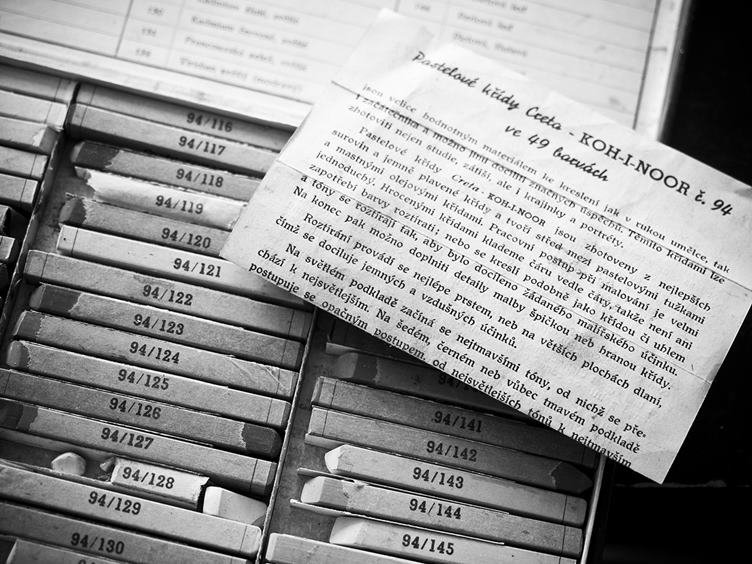 Pastelové křídy Creta - KOH-I-NOOR č. 94
ve 49 barvách
jsou velice hodnotným materiálem ke kreslení jak v rukou umělce, tak
i začátečníka a možno jimi docíliti značných úspěchů. Těmito křídami lze
zhotoviti nejen studie, zátiší, ale i krajinky a portréty.
Pastelové křídy Creta - KOH-I-NOOR jsou zhotoveny z nejlepších
surovin a jemně plavené křídy a tvoří střed mezi pastelovými tužkami
a mastnými olejovými křídami. Pracovní postup při malování je velmi
jednoduchý. Hrocenými křídami klademe čáru vedle čáry, takže není ani
zapotřebí barvy roztírati; nebo se kreslí podobně jako křídou či uhlem
a tóny se roztírají tak, aby bylo docíleno žádaného malířského účinku.
Na konec pak možno doplniti detaily malby špičkou neb hranou křídy.
Roztírání provádí se nejlépe prstem, neb na větších plochách dlaní,
čímž se dociluje jemných a vzdušných účinků.
Na světlém podkladě začíná se nejtmavšími tóny, od nichž se pře-
chází k nejsvětlejším. Na šedém, černém neb vůbec tmavém podkladě
postupuje se opačným postupem, od nejsvětlejších tónů k nejtmavším
94/116
94/117
94/118
94/119
94/120
94/121
94/122
94/123
94/124
94/125
94/126
94/127
94/128
94/129
94/130
94/141
94/142
94/143
94/144
94/145